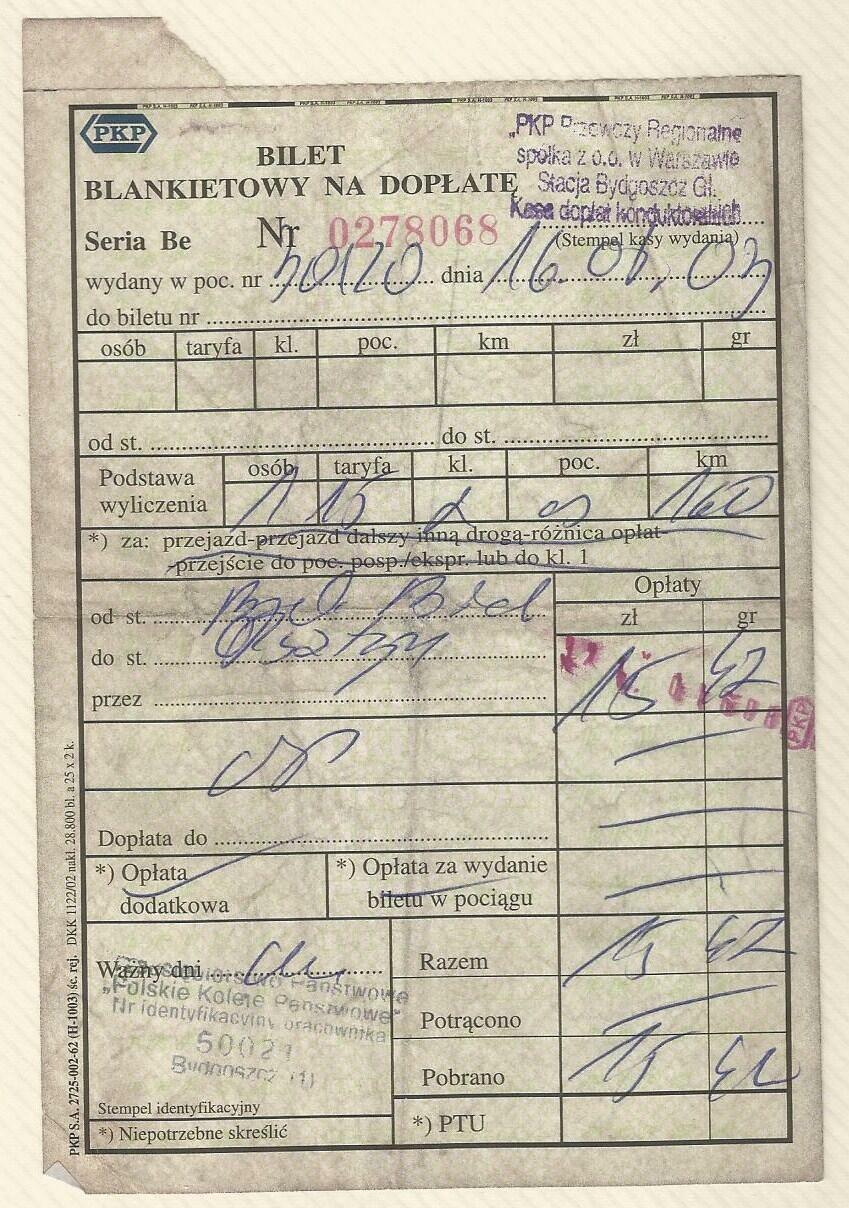 PKP S.A. H-1003 PKP S.A. H-1003
PKP
BILET
BLANKIETOWY NA DOPŁATĘ
„PKP Przewozy Regionalne
spółka z o.o. w Warszawie
Stacja Bydgoszcz Gł.
Kasa dopłat konduktorskich
Seria Be Nr 0278068
(Stempel kasy wydania)
wydany w poc. nr 50120 dnia 16. 03
do biletu nr
osób taryfa kl. poc. km zł gr
od st. do st.
Podstawa wyliczenia osób taryfa kl. poc. km
1 15 2 160
*) za: przejazd-przejazd dalszy inną drogą-różnica opłat-
-przejście do poc. posp./ekspr. lub do kl. 1
Opłaty
zł gr
od st. Bydg.
do st. Olsztyn
przez
15 42
PKP
Dopłata do
*) Opłata
dodatkowa
*) Opłata za wydanie
biletu w pociągu
Ważny dni
Razem 15 42
Przedsiębiorstwo Państwowe
„Polskie Koleje Państwowe"
Nr identyfikacyjny pracownika
50021
Bydgoszcz (1)
Potrącono
Pobrano 15 42
Stempel identyfikacyjny
*) PTU
*) Niepotrzebne skreślić
PKP S.A. 2725-002-62 (H-1003) śc. rej. DKK 1122/02 nakł. 28.800 bl. a 25 x 2 k.